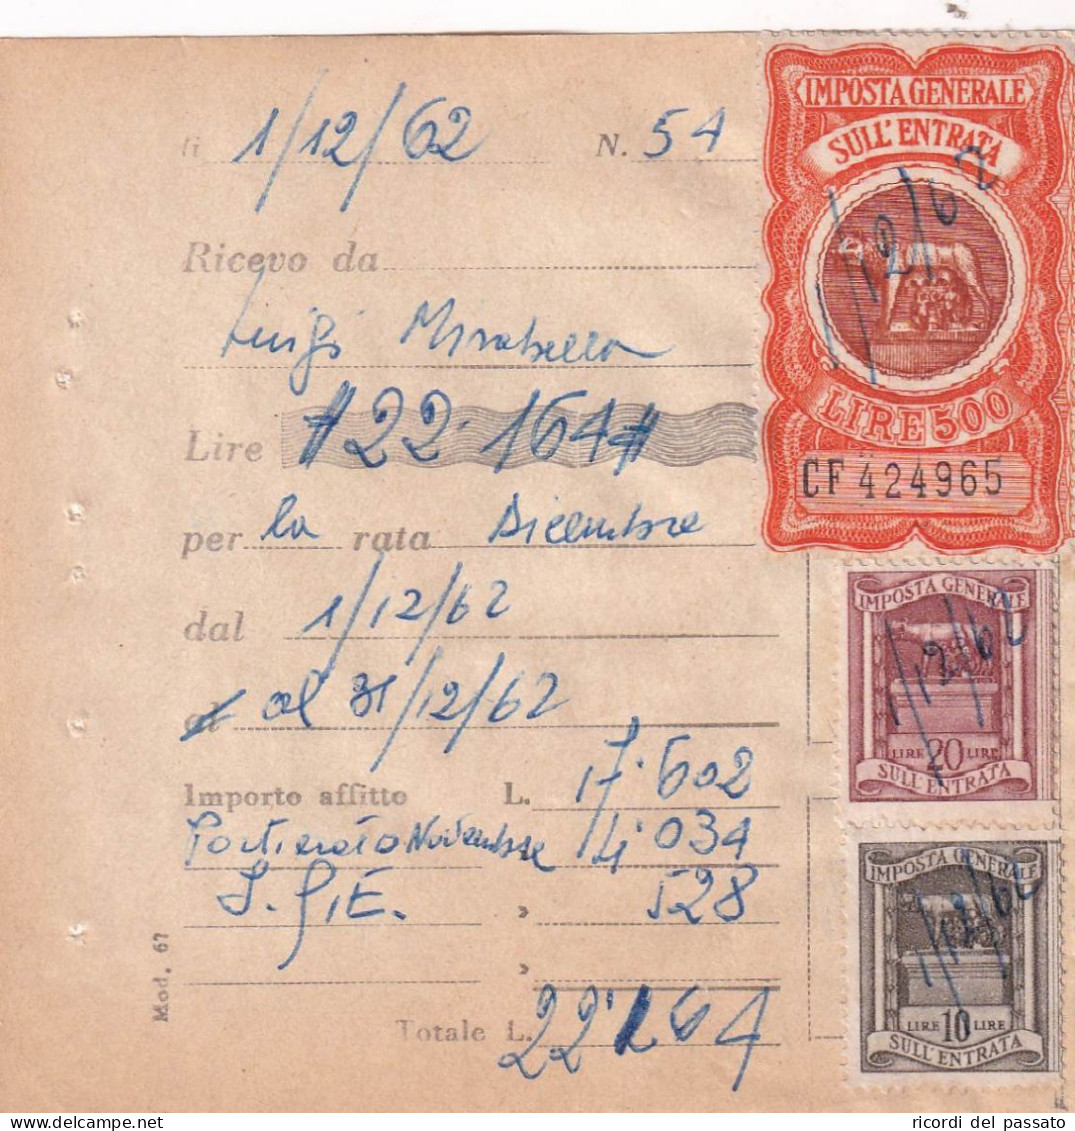 li 1/12/62 N. 54
Ricevo da
Luigi Mirabella
Lire #22.164#
per la rata Dicembre
dal 1/12/62
al al 31/12/62
Importo affitto L. 17.602
Portierato Novembre 4.034
I.G.E. » 528
»
Totale L. 22.164
Mod. 67
IMPOSTA GENERALE
SULL'ENTRATA
1/12/62
LIRE 500
CF 424965
IMPOSTA GENERALE
1/12/62
LIRE 20 LIRE
SULL'ENTRATA
IMPOSTA GENERALE
1/12/62
LIRE 10 LIRE
SULL'ENTRATA
ricordi del passato